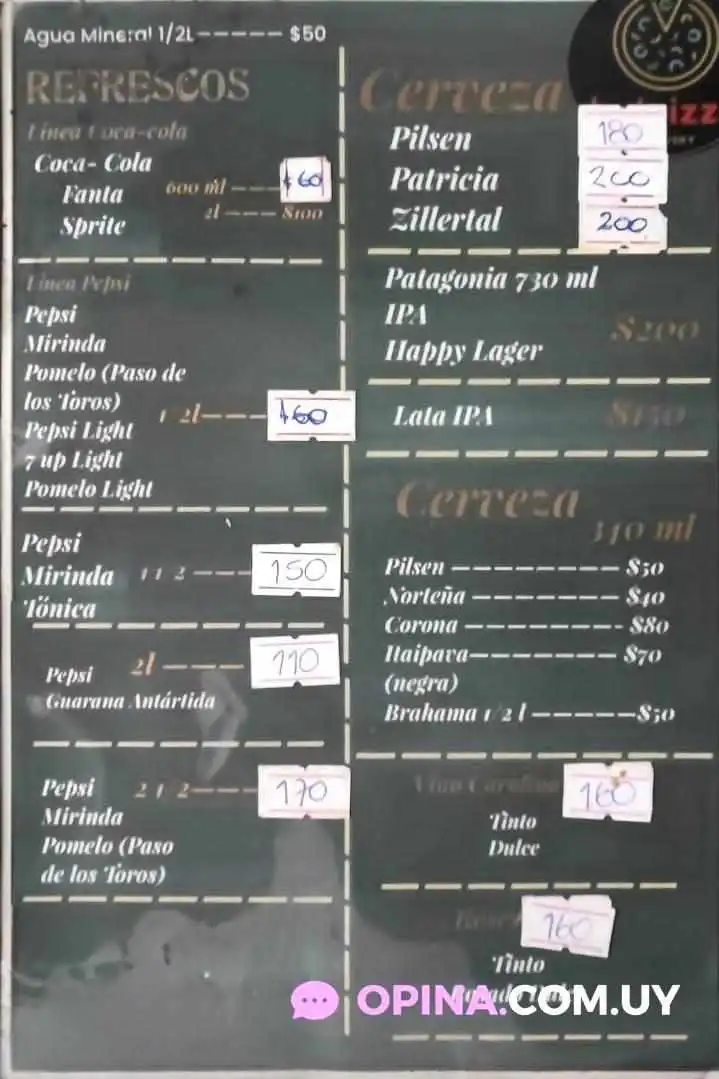 Agua Mineral 1/2L----- $50
REFRESCOS
Linea Coca-cola
Coca- Cola
Fanta 600 ml --- $60
Sprite 2l --- $100
Linea Pepsi
Pepsi
Mirinda
Pomelo (Paso de
los Toros)
1/2l--- $60
Pepsi Light
7 up Light
Pomelo Light
Pepsi
Mirinda 1 1/2 --- 150
Tónica
2l --- 110
Pepsi
Guarana Antártida
Pepsi 2 1/2--- 170
Mirinda
Pomelo (Paso
de los Toros)
Cerveza
Pilsen 180
Patricia 200
Zillertal 200
Patagonia 730 ml
IPA
$200
Happy Lager
Lata IPA $150
Cerveza
340 ml
Pilsen -------- $50
Norteña ------- $40
Corona -------- $80
Itaipava------- $70
(negra)
Brahama 1/2 l -----$50
Vino 160
Tinto
Dulce
160
Tinto
OPINA.COM.UY